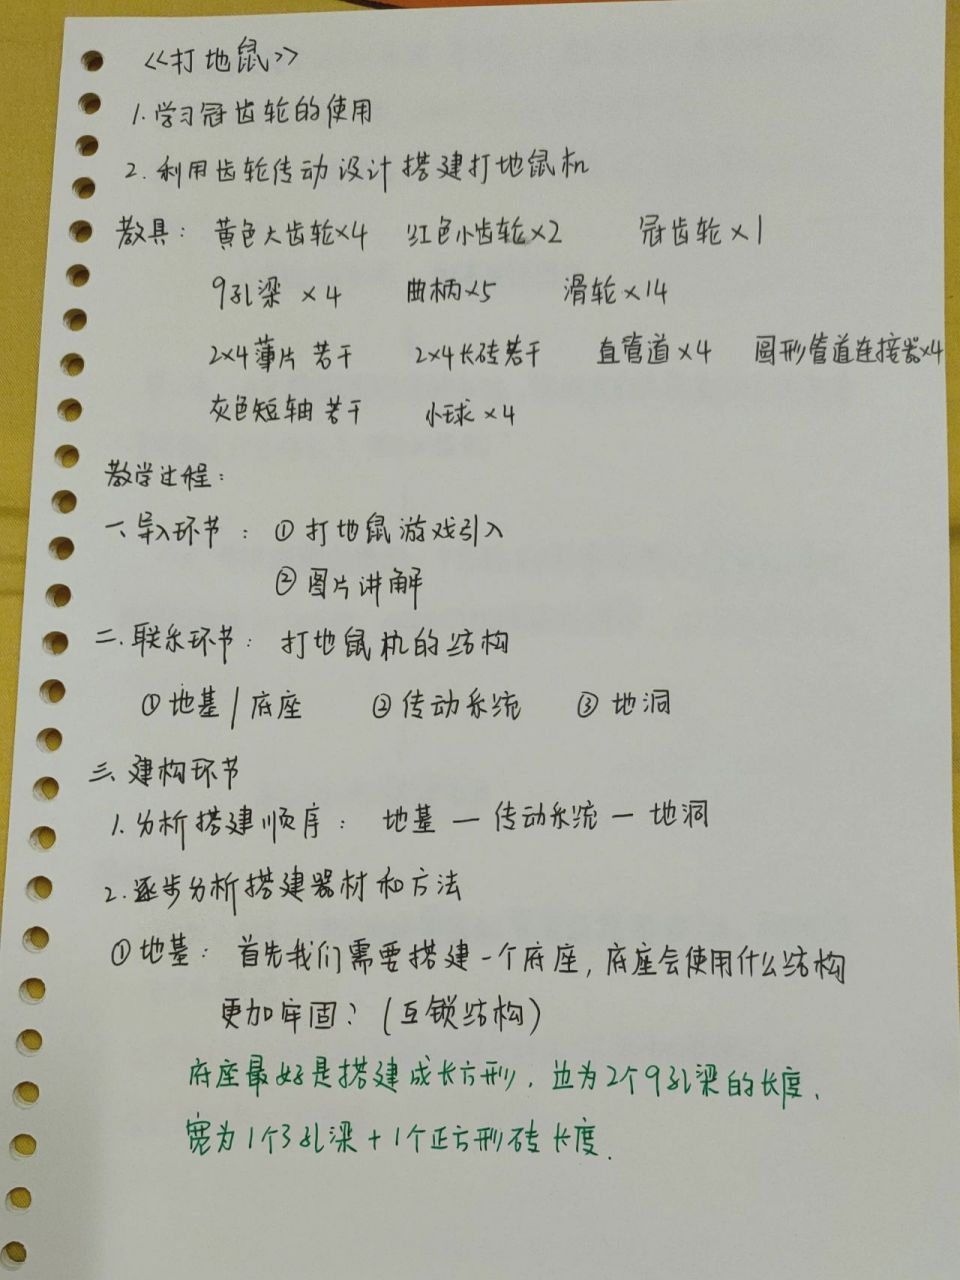 <<打地鼠>>
1.学习冠齿轮的使用
2.利用齿轮传动设计搭建打地鼠机
教具: 黄色大齿轮×4 红色小齿轮×2 冠齿轮×1
9孔梁×4 曲柄×5 滑轮×14
2×4薄片若干 2×4长砖若干 直管道×4 圆形管道连接器×4
灰色短轴若干 小球×4
教学过程:
一、导入环节: ①打地鼠游戏引入
②图片讲解
二.联系环节: 打地鼠机的结构
①地基/底座 ②传动系统 ③地洞
三、建构环节
1.分析搭建顺序: 地基—传动系统—地洞
2.逐步分析搭建器材和方法
①地基: 首先我们需要搭建一个底座,底座会使用什么结构
更加牢固?(互锁结构)
底座最好是搭建成长方形,边为2个9孔梁的长度,
宽为1个3孔梁+1个正方形砖长度.